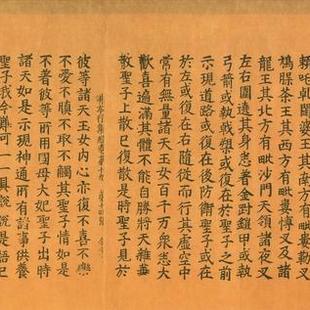 賴吒乹闥婆王其南方有毗婁勒叉
鳩槃茶王其西方有毗婁博叉及諸
龍王其北方有毗沙門天領諸夜叉
左右圍遶其身悉著金剛鎧甲或執
弓箭或執戟槊或復在於聖子之前
示現道路或復在後防衛聖子或在
於左或復在右隨從而行其虛空中
常有無量諸天玉女百千萬衆悉大
歡喜遍滿其體不能自勝將天雜華
散聖子上散已復散是時聖子見於
彼等諸天玉女内心亦復不喜不樂
不愛不瞋不取不觸其聖子情如是
不著彼等所用國母大妃聖子出時
諸天如是示現神通所有諸事供養
聖子我今難可一一具說說是語已